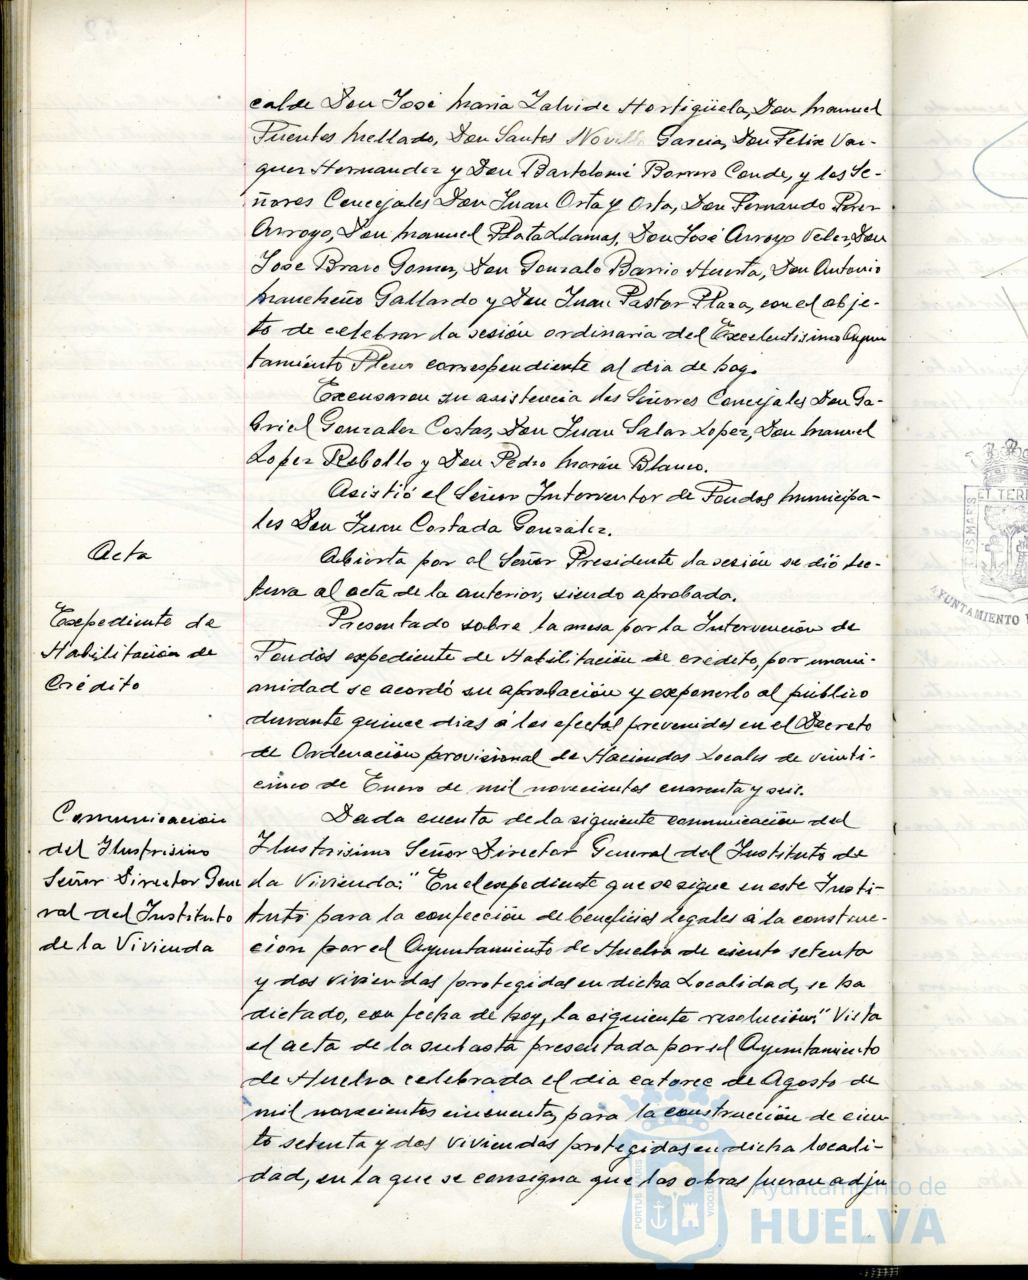 calde Don José Maria Zalvide Hortigüela, Don Manuel
Fuentes Mellado, Don Santos Novillo Garcia, Don Felix Vaz-
quez Hernandez y Don Bartolomé Borrero Conde, y los Se-
ñores Concejales Don Juan Orta y Orta, Don Fernando Perez
Arroyo, Don Manuel Plata Llamas, Don José Arroyo Velez, Don
José Bravo Gomez, Don Gonzalo Barrio Huerta, Don Antonio
Mancheño Gallardo y Don Juan Pastor Plaza, con el obje-
to de celebrar la sesión ordinaria del Excelentisimo Ayun
tamiento Pleno correspondiente al dia de hoy.
Excusaron su asistencia los Señores Concejales Don Ga-
briel Gonzalez Costas, Don Juan Salas Lopez, Don Manuel
Lopez Rebollo y Don Pedro Morón Blanco.
Asistió el Señor Interventor de Fondos Municipa-
les Don Juan Costada Gonzalez.
Acta
Abierta por el Señor Presidente la sesión se dió lec-
tura al acta de la anterior, siendo aprobada.
Expediente de
Habilitación de
Crédito
Presentado sobre la mesa por la Intervención de
Fondos expediente de Habilitación de crédito, por unani-
anidad se acordó su aprobación y exponerlo al público
durante quince dias á los efectos prevenidos en el Decreto
de Ordenación provisional de Haciendas Locales de veinti-
cinco de Enero de mil novecientos cuarenta y seis.
Comunicacion
del Ilustrisimo
Señor Director Gene
ral del Instituto
de la Vivienda
Dada cuenta de la siguiente comunicación del
Ilustrisimo Señor Director General del Instituto de
la Vivienda: "En el expediente que se sigue en este Insti-
tuto para la confección de beneficios legales á la construc-
cion por el Ayuntamiento de Huelva de ciento setenta
y dos viviendas protegidas en dicha Localidad, se ha
dictado, con fecha de hoy, la siguiente resolución: "Vista
el acta de la subasta presentada por el Ayuntamiento
de Huelva celebrada el dia catorce de Agosto de
mil novecientos cincuenta, para la construcción de cien-
to setenta y dos viviendas protegidas en dicha locali-
dad, en la que se consigna que las obras fueron adju
Ayuntamiento de
HUELVA
PORTUS MARIS